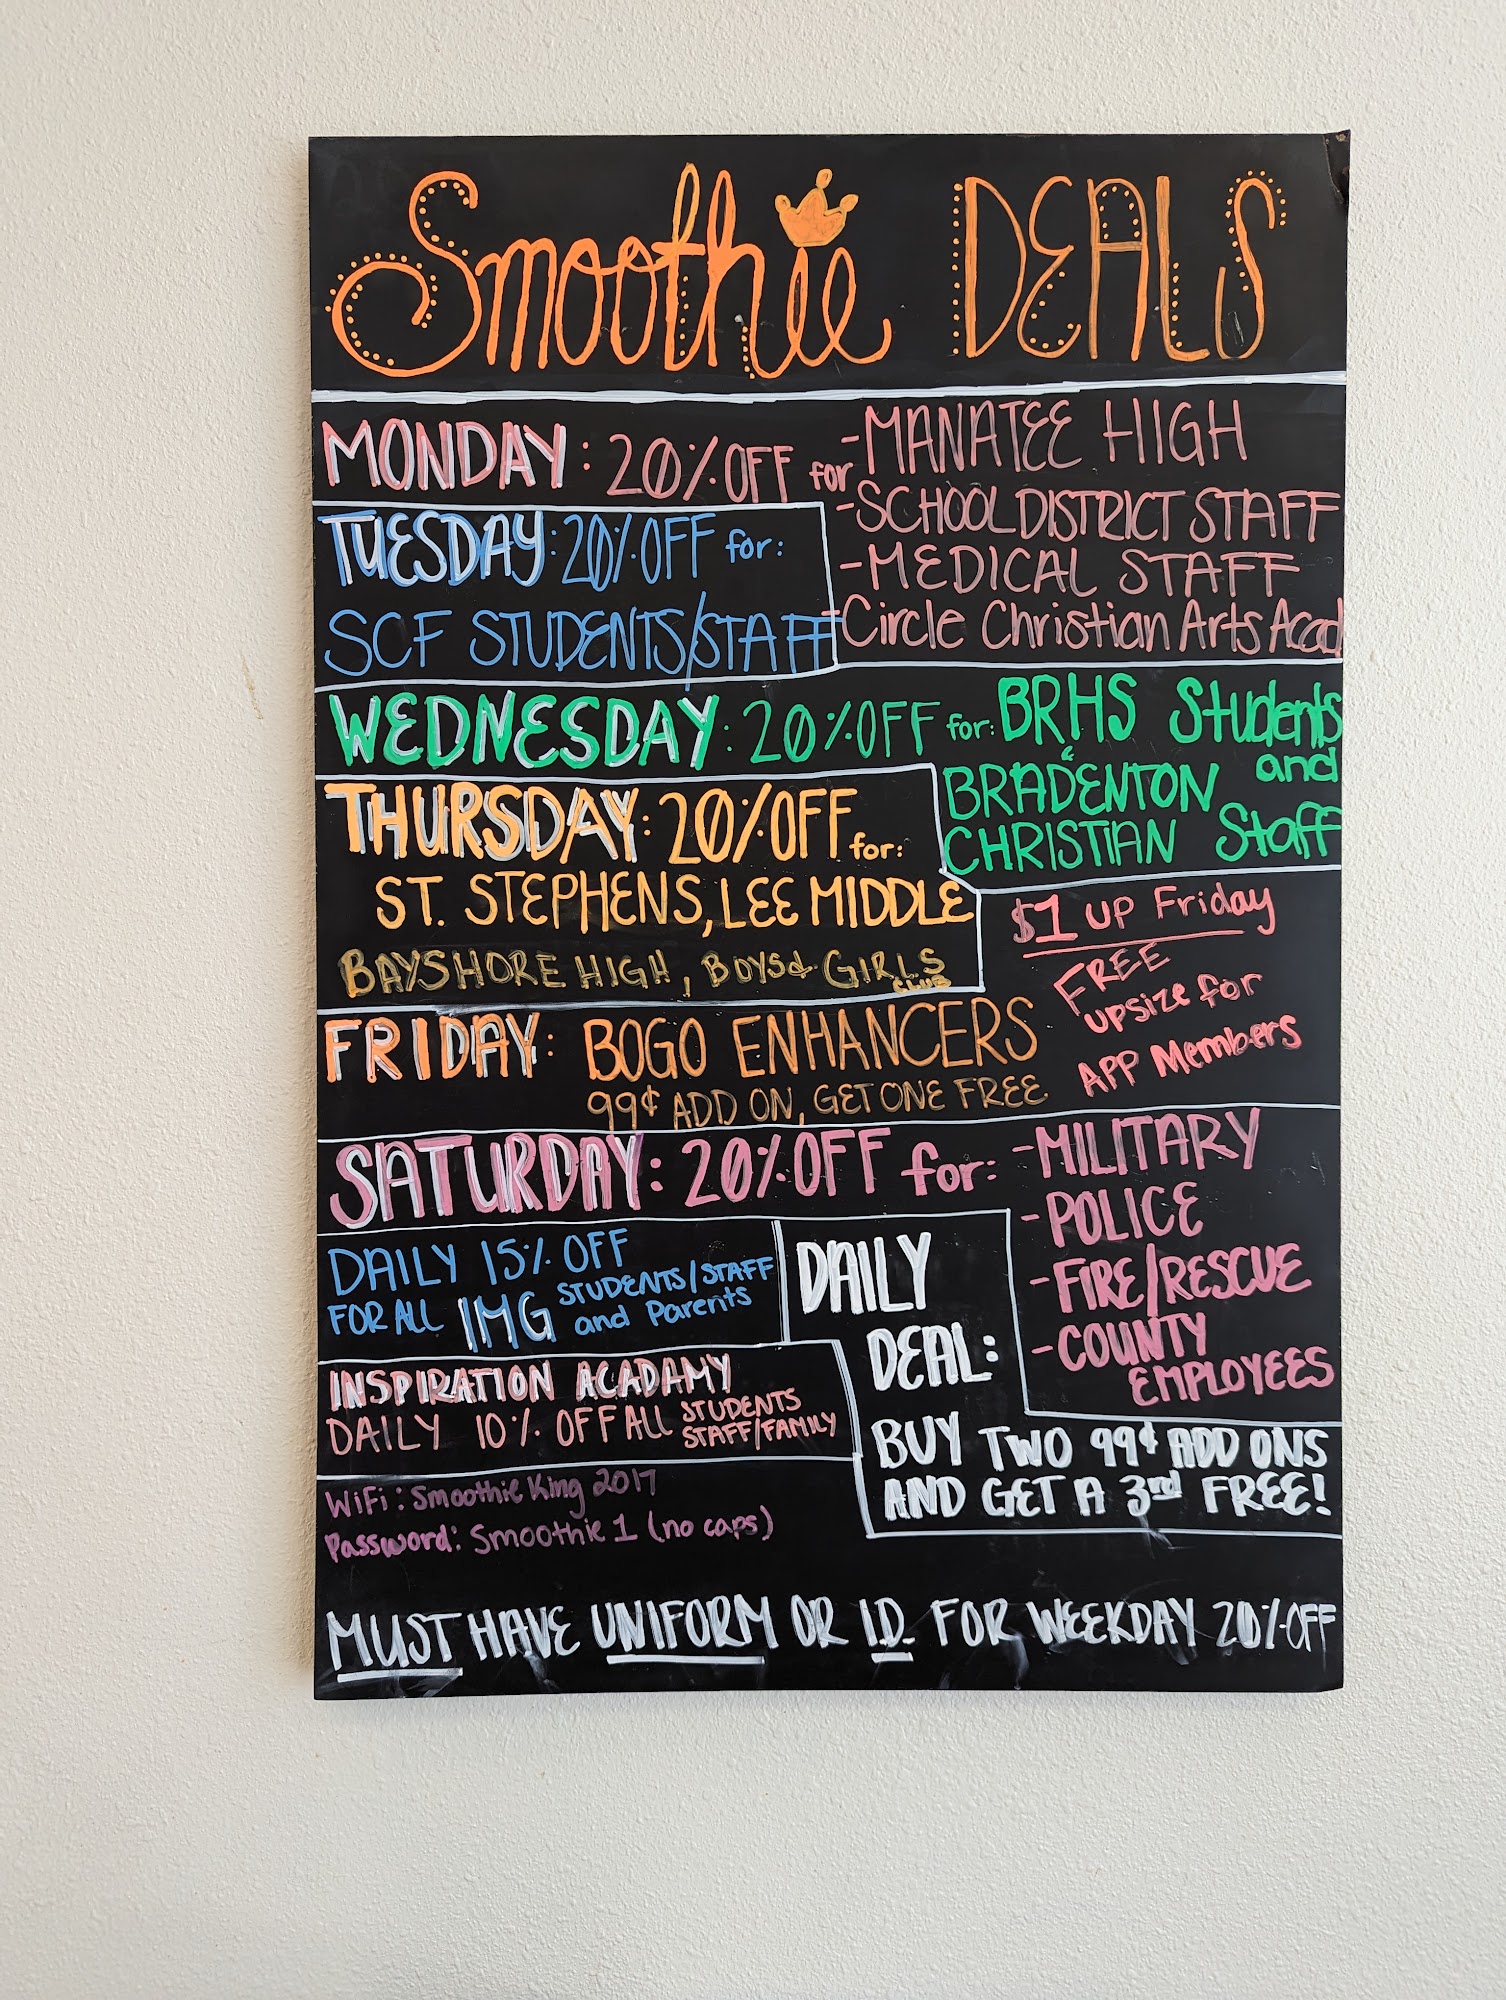 Smoothie DEALS
MONDAY: 20% OFF for
-MANATEE HIGH
-SCHOOL DISTRICT STAFF
-MEDICAL STAFF
-Circle Christian Arts Acad
TUESDAY: 20% OFF for:
SCF STUDENTS/STAFF
WEDNESDAY: 20% OFF for: BRHS Students
& and
BRADENTON
CHRISTIAN Staff
THURSDAY: 20% OFF for:
ST. STEPHENS, LEE MIDDLE
BAYSHORE HIGH, BOYS & GIRLS
CLUB
$1 UP Friday
FREE
upsize for
APP Members
FRIDAY: BOGO ENHANCERS
99¢ ADD ON, GET ONE FREE
SATURDAY: 20% OFF for:
-MILITARY
-POLICE
-FIRE/RESCUE
-COUNTY
EMPLOYEES
DAILY 15% OFF
FOR ALL IMG STUDENTS/STAFF
and Parents
DAILY
DEAL:
BUY TWO 99¢ ADD ONS
AND GET A 3rd FREE!
INSPIRATION ACADAMY
DAILY 10% OFF ALL STUDENTS
STAFF/FAMILY
WiFi: Smoothie King 2017
Password: Smoothie 1 (no caps)
MUST HAVE UNIFORM OR I.D. FOR WEEKDAY 20% OFF